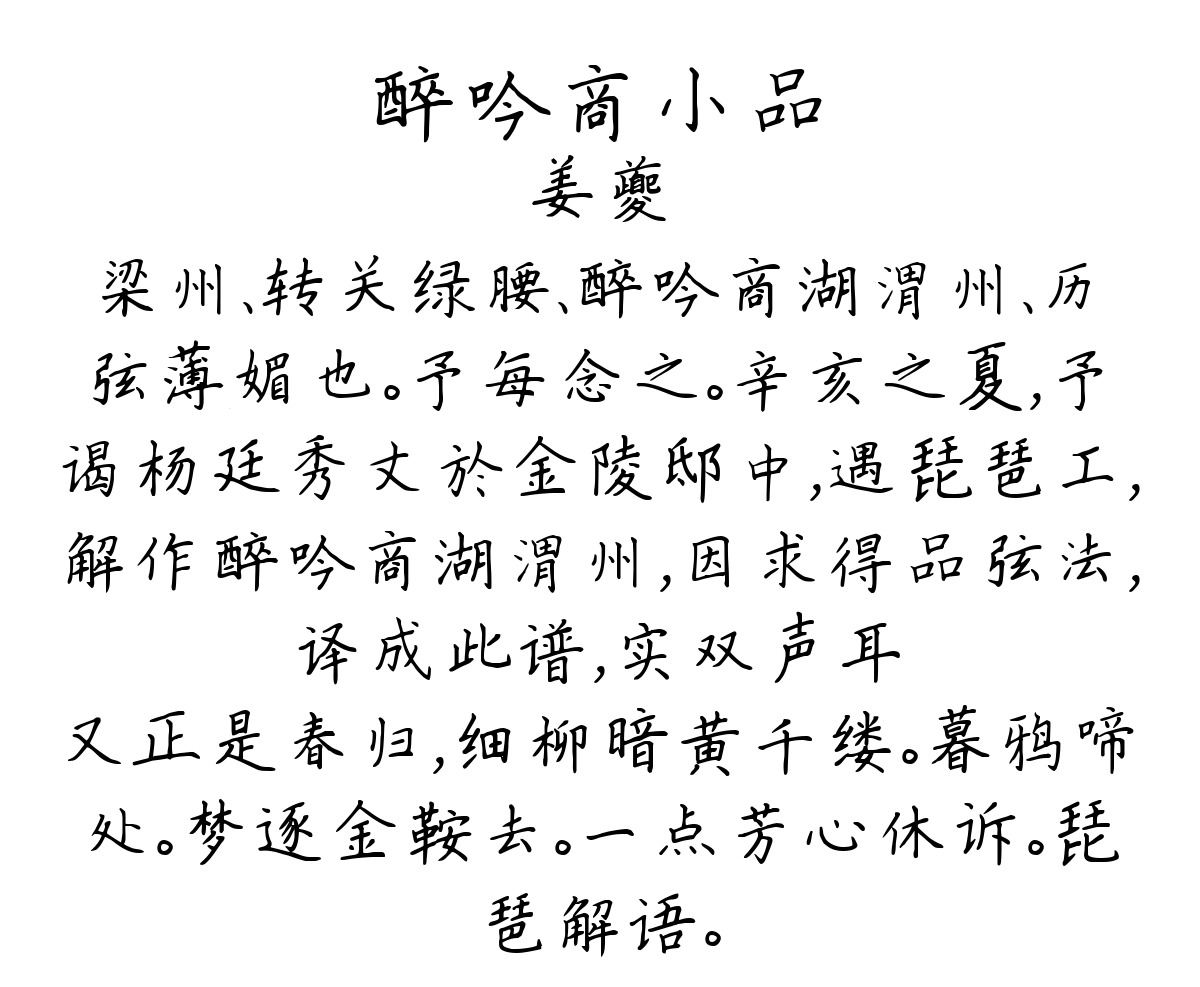 醉吟商小品
姜夔
梁州、转关绿腰、醉吟商湖渭州、历
弦薄媚也。予每念之。辛亥之夏,予
谒杨廷秀丈於金陵邸中,遇琵琶工,
解作醉吟商湖渭州,因求得品弦法,
译成此谱,实双声耳
又正是春归,细柳暗黄千缕。暮鸦啼
处。梦逐金鞍去。一点芳心休诉。琵
琶解语。